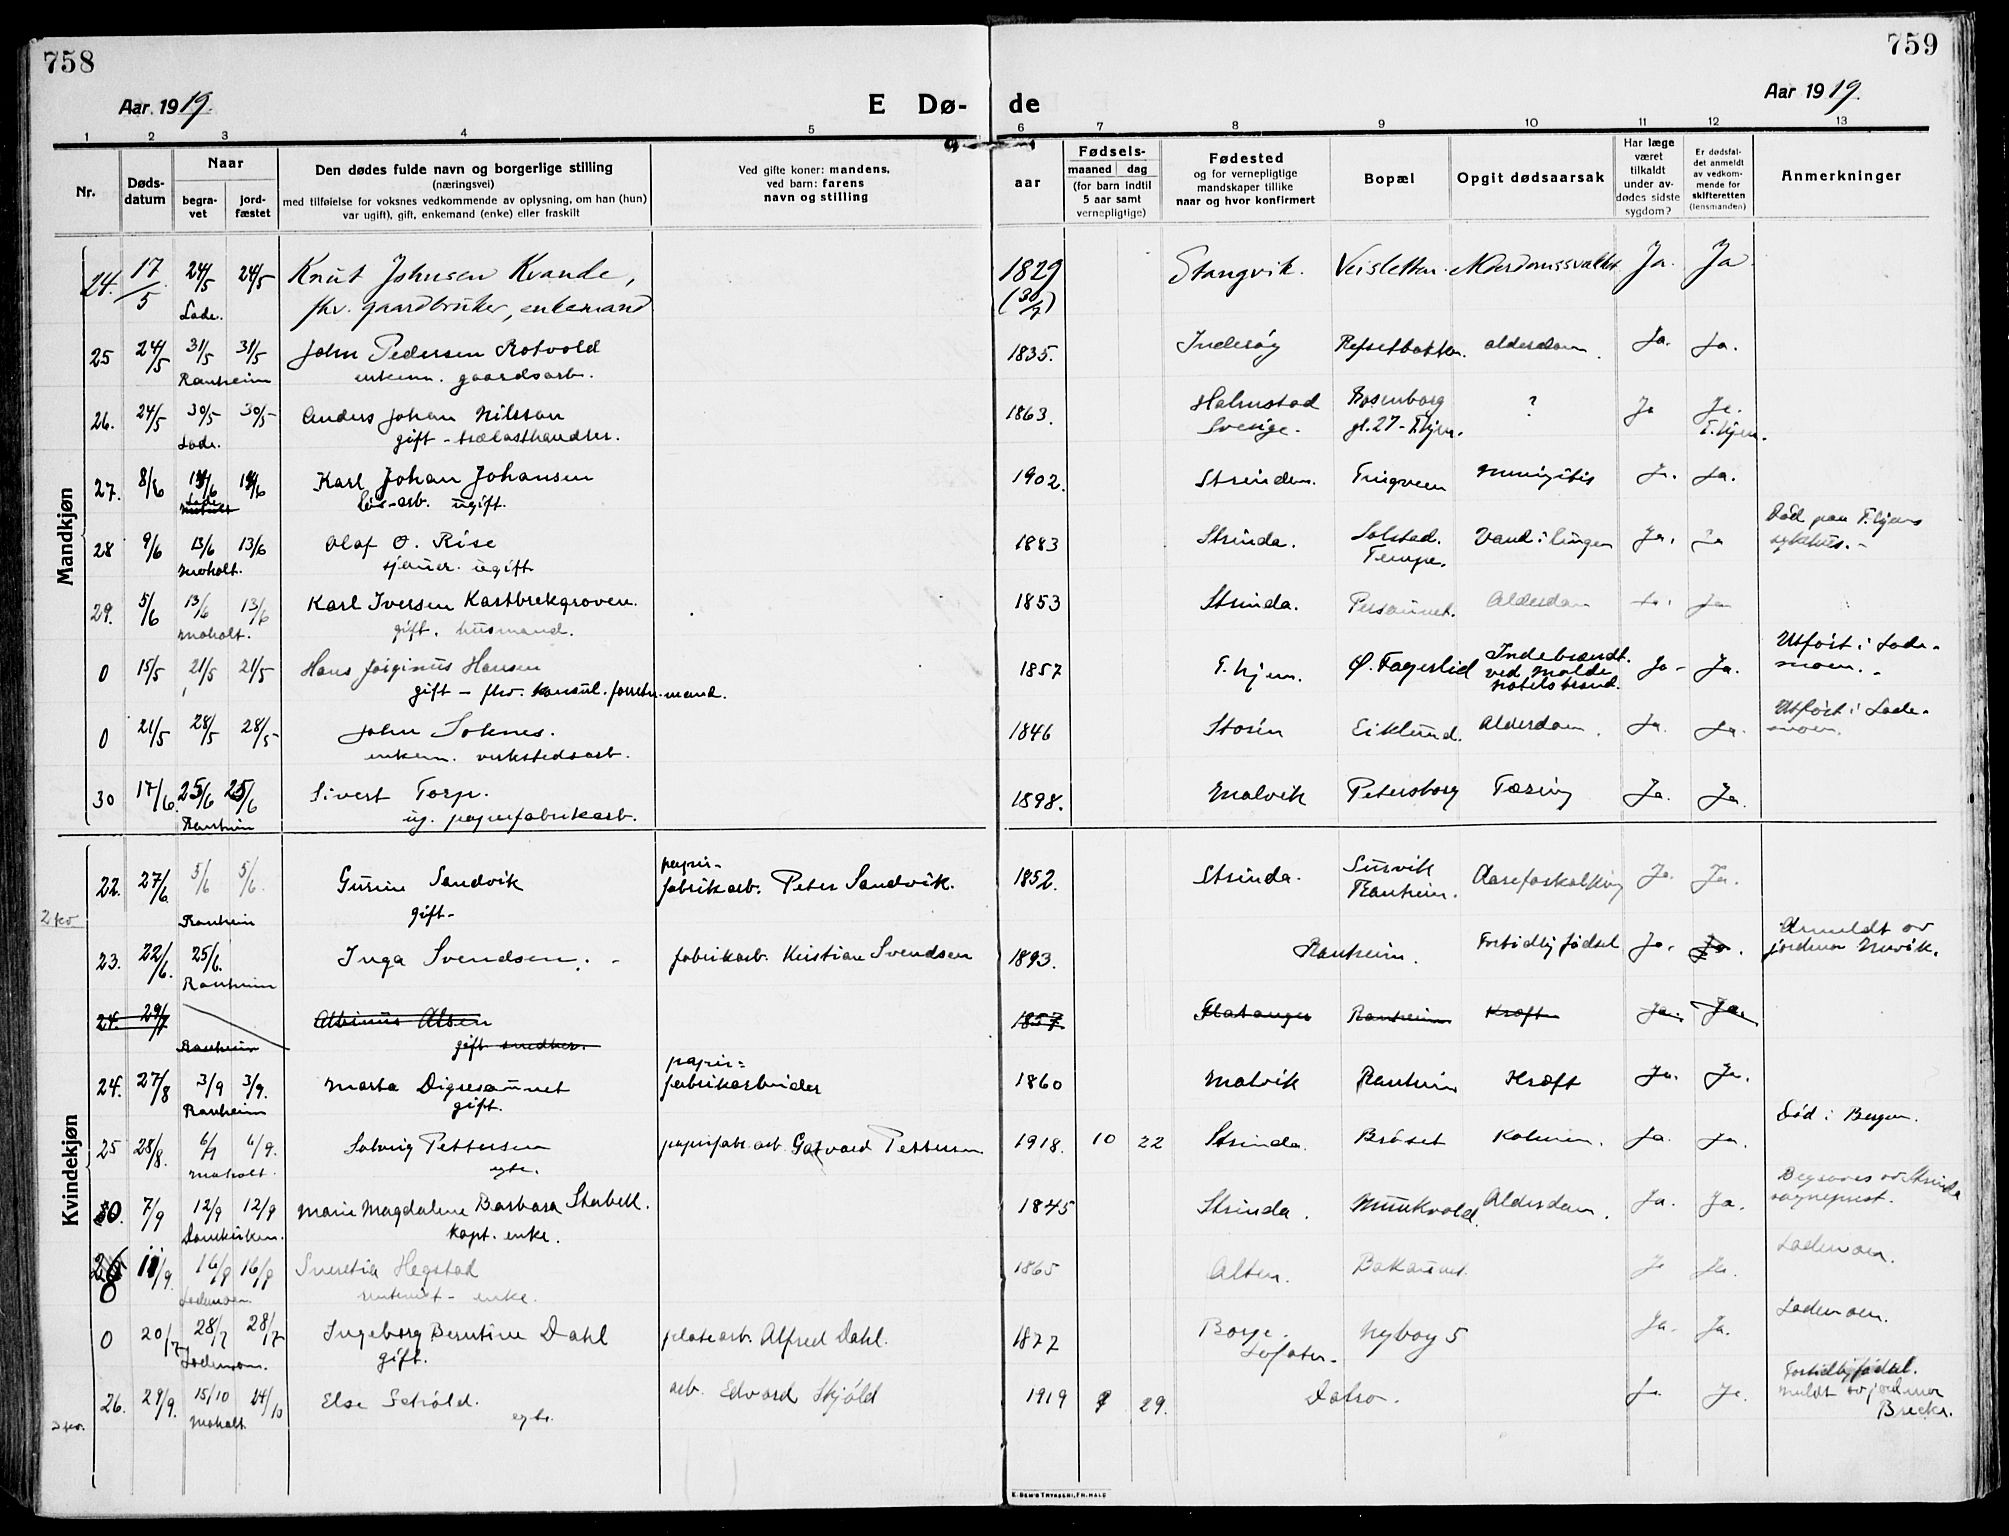 758
759
Aar 1919.
E Dø- de
Aar 1919.
1 2 3 4 5 6 7 8 9 10 11 12 13
Nr.
Døds-
datum
Naar
begra-
vet
jord-
fæstet
Den dødes fulde navn og borgerlige stilling
(næringsvei)
med tilføielse for voksnes vedkommende av oplysning, om han (hun)
var ugift), gift, enkemand (enke) eller fraskilt
Ved gifte koner: mandens,
ved barn: farens
navn og stilling
aar
Fødsels-
maaned dag
(for barn indtil
5 aar samt
vernepligtige)
Fødested
og for vernepligtige
mandskaper tillike
naar og hvor konfirmert
Bopæl
Opgit dødsaarsak
Har læge
været
tilkaldt
under av-
dødes sidste
sygdom?
Er dødsfal-
det anmeldt
av vedkom-
mende for
skifteretten
(lensmanden)
Anmerkninger
Mandkjøn
24. 17/5 24/5 24/5 Knut Johnsen Kvande, 1829 Stangvik. Veisletten. Ja. Ja
Lade. fhv. gaardbruker, enkemand (30/7)
25 24/5 31/5 31/5 John Pedersen Rotvold 1835. Inderøy Refsetbakken. alderdom. Ja. Ja.
Ranheim enkem. gaardsarb.
26. 24/5 30/5 30/5 Anders Johan Nilsson 1863. Halmstad Rosenborg ? Ja Ja.
Lade. gift - trælasthandler. Sverige. gl. 27 - T.hjem. T.hjem.
27. 8/6 14/6 14/6 Karl Johan Johansen 1902. Strinden. Tingveien Ja. Ja.
Lade løs-arb. ugift.
28 9/6 13/6 13/6 Olaf O. Rise 1883 Strinda. Solstad. Vand i lungen Ja. Ja Død paa T.hjems
Moholt. sjauer. ugift Tempe. sykehus. -
29. 5/6 13/6 13/6 Karl Iversen 1853 Strinda. Persaunet. Alderdom Ja. Ja
Moholt. gift. husmand.
0 15/5 21/5 21/5 Hans Jørginus Hansen 1857 T.hjem. Ø. Fagerlid Indebrændt. Ja - Ja. Utført i Lade-
gift - fhv. konsul. forretn.mand. ved Molde moen. -
hotelsbrand.
0 21/5 28/5 28/5 John Soknes. 1846 Støren Eiklund. Alderdom. Ja. Ja. Utført i Lade-
enkem. verkstedsarb. moen.
30 17/6. 25/6 25/6 Sivert Torp. 1898. Malvik Petersborg Tæring Ja. Ja.
Ranheim ug. papirfabrikarb.
Kvindekjøn
22. 27/6. 5/6 5/6. Gurine Sandvik papir- 1852. Strinda. Survik Aareforkalkning Ja. Ja.
Ranheim gift - fabrikarb. Peter Sandvik. Ranheim.
23. 22/6. 25/6. Inga Svendsen. - fabrikarb. Kristian Svendsen 1893. Ranheim. Fortidlig fødsel Ja. Ja. Anmeldt av
Ranheim jordmor
24. 29/7 Albinus Alsen 1857 Flatanger Ranheim Kræft Ja. Ja.
Ranheim gift snedker.
24. 27/8 3/9 3/9. Marta Digresaunet papir= 1860 Malvik Ranheim Kræft Ja. Ja.
Ranheim gift. fabrikarbeider
25 28/8. 6/9 6/9. Solveig Pettersen papirfabr. arb. Pettersen 1918. 10 22 Strinda. Brøset Ja. Ja. Død i Bergen.
Moholt. egte.
30. 7/9 12/9 12/9 Marie Magdalene Barbara Stabell. 1845 Strinda. Munkvold. Alderdom. Ja. Ja. Begraves av Strinda
Domkirken. kapt. enke. sogneprest.
0 11/9. 16/9 16/9 Hegstad 1865 Alten. Bakaunet. Ja Ja. Lademoen.
Lademoen. enke.
0 20/7 28/7 28/7 Ingeborg Berntine Dahl platearb. Alfred Dahl. 1877 Borge. Nyborg 5 Ja. Ja. Lademoen.
Lademoen. gift. Lofoten.
26. 29/9. 15/10 24/10 Else arb. Edvard Skjöld 1919 9 29. Dalro. Ja. Ja. Fortidlig fødsel.
Moholt egte. meldt av jordmor